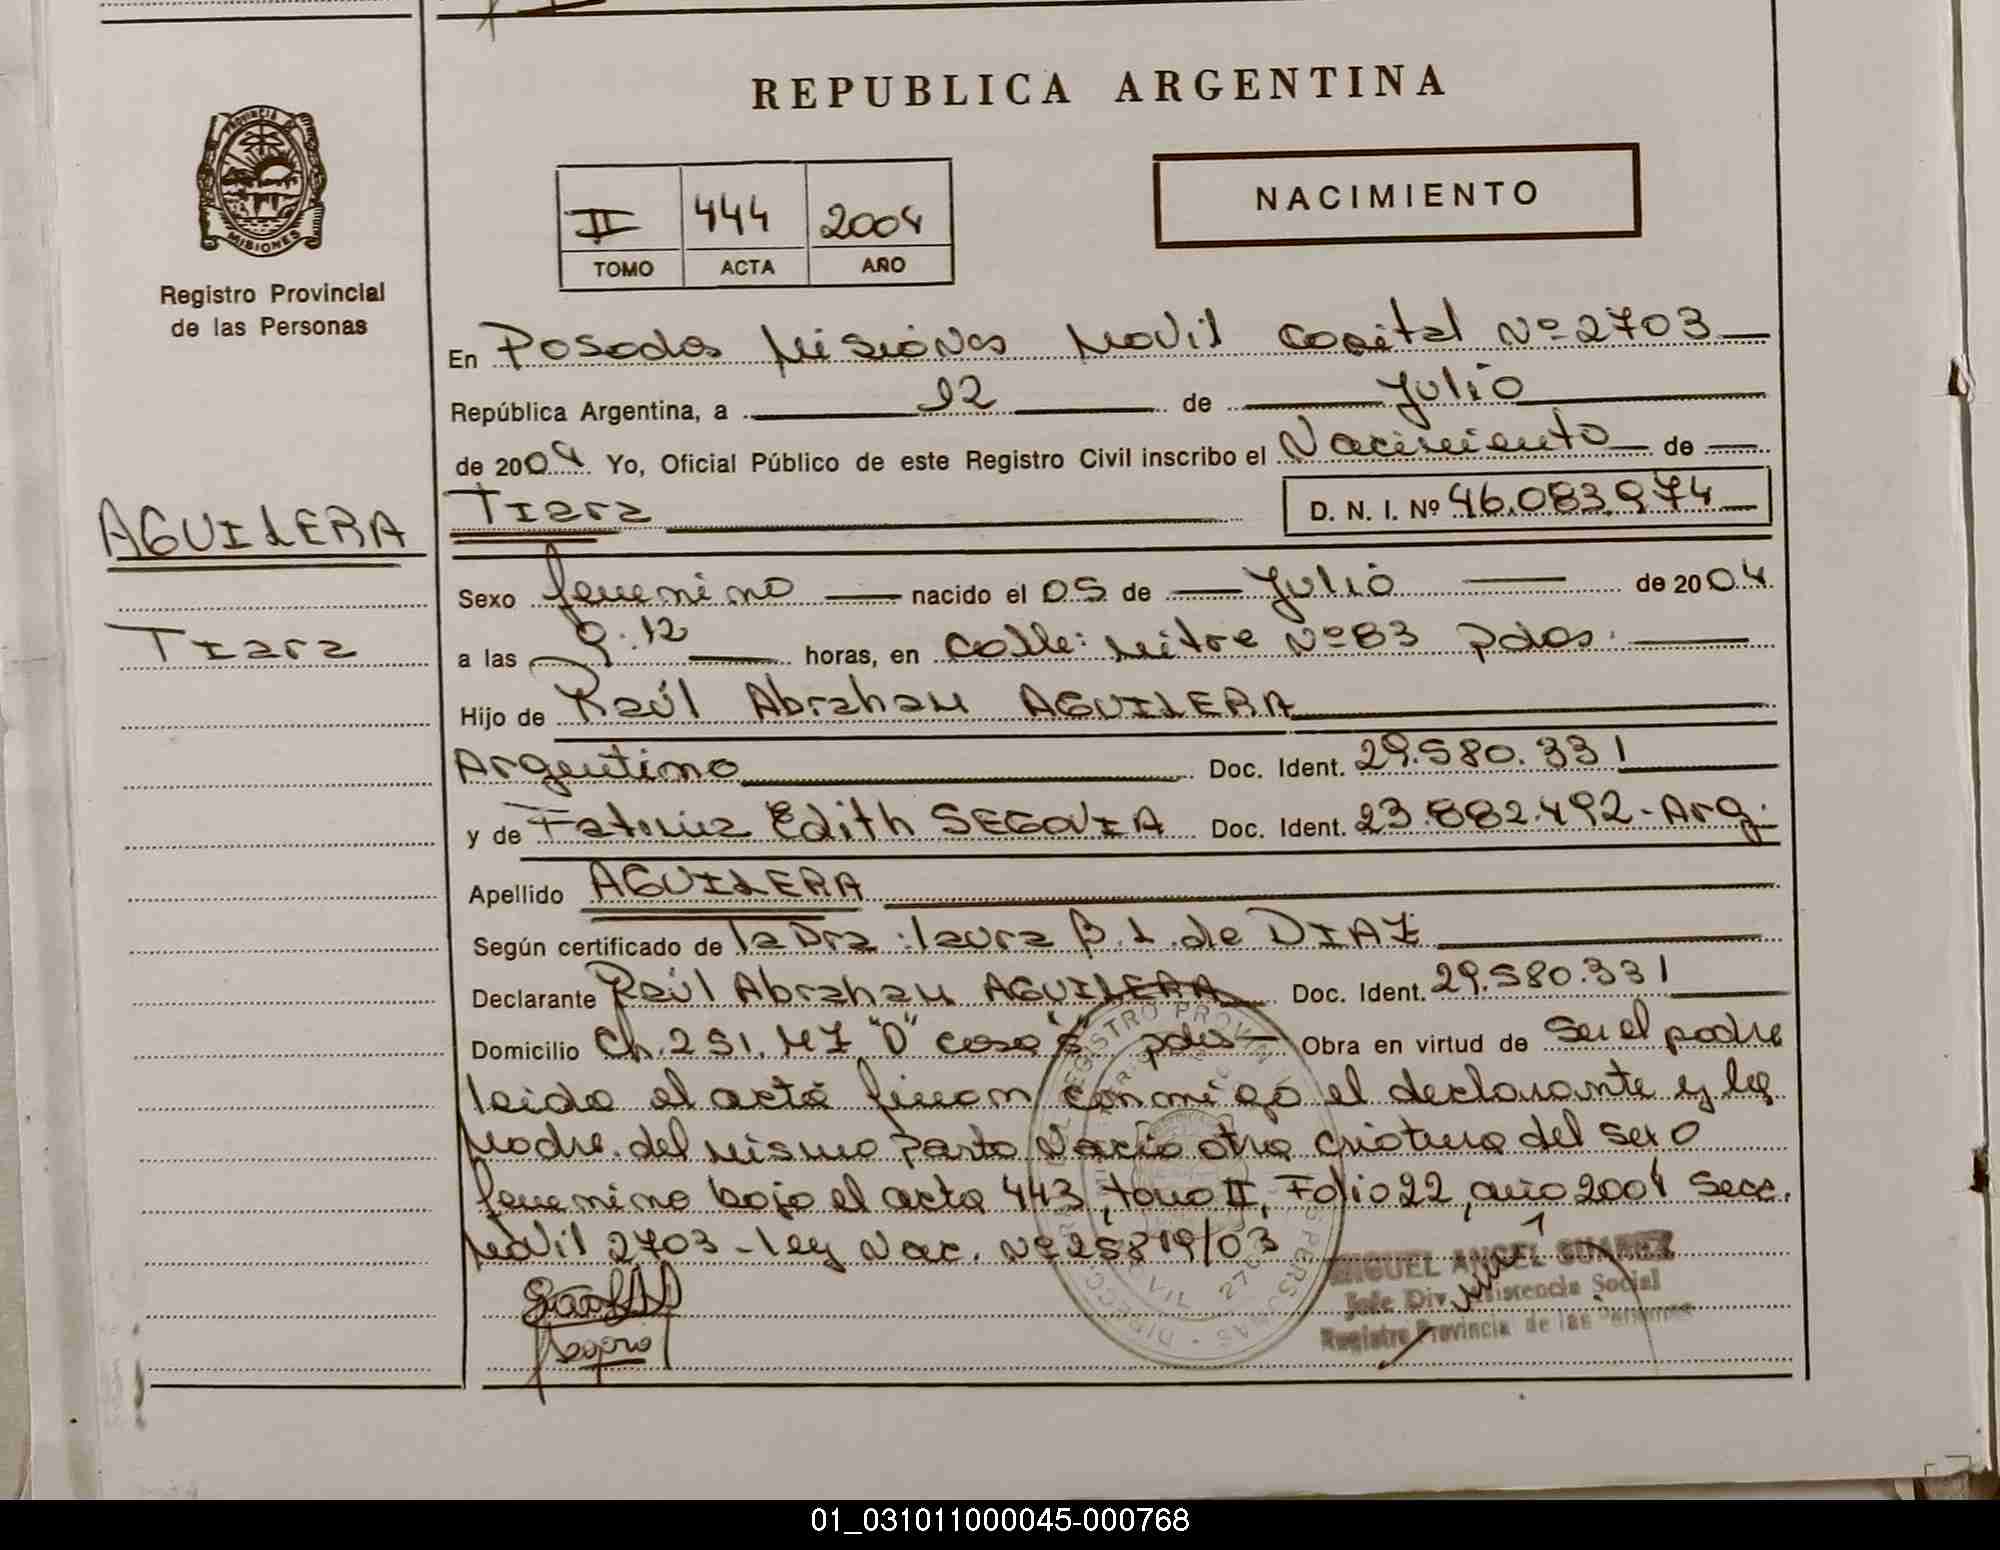 REPUBLICA ARGENTINA
PROVINCIA DE
MISIONES
Registro Provincial
de las Personas
II 444 2004
TOMO ACTA AÑO
NACIMIENTO
En Posadas Misiones Movil Capital Nº 2703
República Argentina, a 12 de Julio
de 2004 Yo, Oficial Público de este Registro Civil inscribo el Nacimiento de
AGUILERA
Tiara
Tiara D. N. I. Nº 46.083.974
Sexo femenino nacido el 05 de Julio de 2004
a las 9:12 horas, en calle: Mitre Nº 83 pdas.
Hijo de Raúl Abraham AGUILERA
Argentino Doc. Ident. 29.580.331
y de Fatima Edith SEGOVIA Doc. Ident. 23.882.492-Arg.
Apellido AGUILERA
Según certificado de la Dra. Laura B. L. de DIAZ
Declarante Raúl Abraham AGUILERA Doc. Ident. 29.580.331
Domicilio Ch. 251. MZ "D" casa pdas Obra en virtud de ser el padre
leida el acta firman conmigo el declarante y la
Madre. del mismo Parto Nacio otra criatura del sexo
femenino bajo el acta 443, tomo II, Folio 22, año 2004 Secc.
Movil 2703 - ley Nac. Nº 25819/03
MIGUEL ANGEL SUAREZ
Jefe Div. Asistencia Social
Registro Provincia de las Personas
01_031011000045-000768